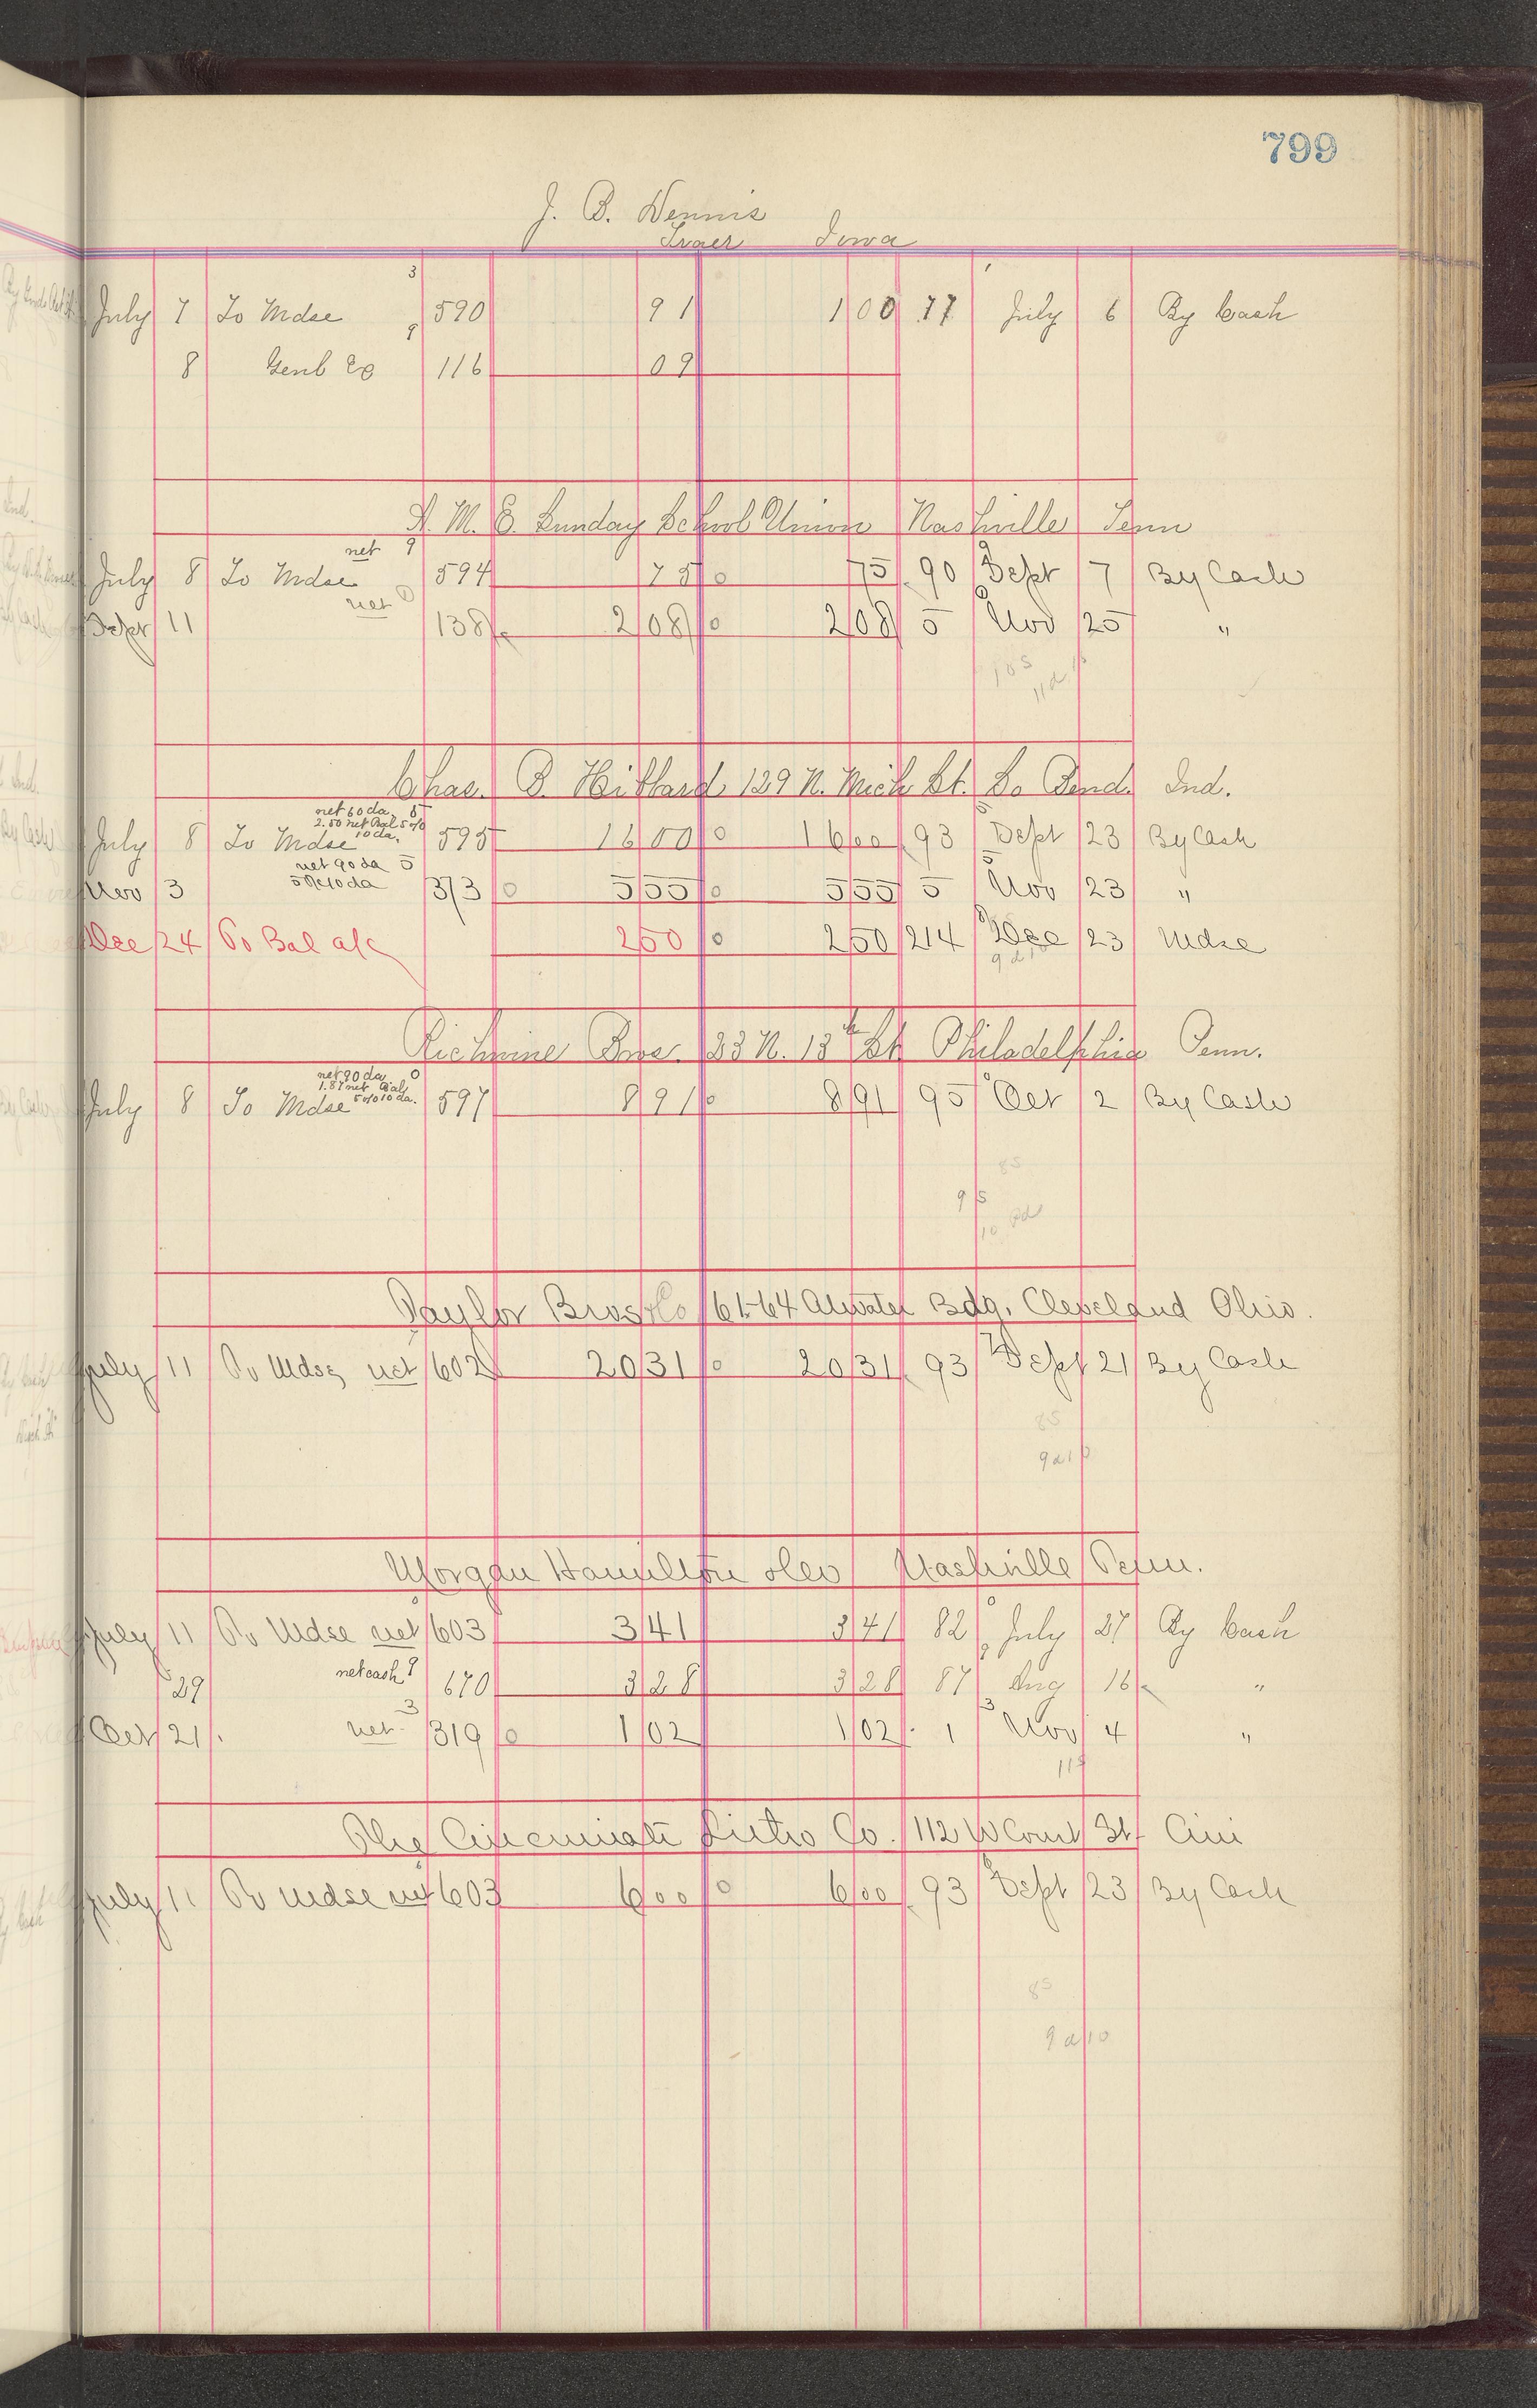 799
J. B. Dennis
Traer Iowa
July 7 To Mdse 3 590 91 1 00 77 July 6 By Cash
8 Genl Ex 9 116 09
A. M. E. Sunday School Union Nashville Tenn
July 8 To Mdse net 9 594 75 0 75 90 Sept 7 By Cash
Sept 11 net 138 2 08 0 2 08 5 Nov 25 "
Chas. B. Hibbard 129 N. Mich St. So Bend, Ind.
net 60 da. 5
2.50 net Bal 5%
10 da.
July 8 To Mdse 595 16 00 0 16 00 93 Sept 23 By Cash
net 90 da 5
Nov 3 5% 10 da 313 0 5 55 0 5 55 5 Nov 23 "
Dec 24 To Bal a/c 2 50 0 2 50 214 Dec 23 Mdse
9 d 10
Bros. 133 N. 13th St Philadelphia Penn.
net 90 da 0
1.87 net Bal
5% 10 da.
July 8 To Mdse 597 8 91 0 8 91 95 Oct 2 By Cash
85
9/5
10
Taylor Bros Co 61-64 Atwater Bdg. Cleveland Ohio.
July 11 To Mdse net 602 20 31 0 20 31 93 Sept 21 By Cash
85
9 d 10
Morgan Hamilton & Co Nashville Tenn.
July 11 To Mdse net 603 3 41 3 41 82 July 27 By Cash
29 net cash 9 670 3 28 3 28 87 Aug 16 "
Oct 21 net 3 319 0 1 02 1 02 1 Nov 4 "
The Cincinnati Litho Co. 112 W Court St Cini
July 11 To Mdse net 603 6 00 0 6 00 93 Sept 23 By Cash
85
9 d 10